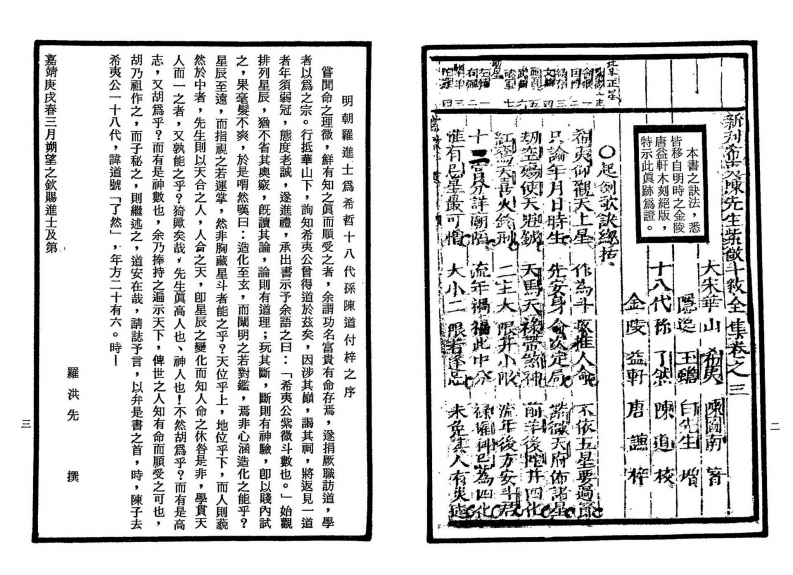 新刊希夷陳先生紫微斗數全集卷之三
大宋華山 希夷 陳圖南 著
隱逸 玉蟾 白先生 增
十八代孫 了然 陳道 校
金陵 益軒 唐謙 梓
本書之訣法,悉
皆移自明時之金陵
唐益軒木刻絕版,
特示此眞跡為證。
○起例歌訣總括
希夷仰觀天上星 作為斗數推人命 不依五星要過節
只論年月日時生 先安身命次定局 紫微天府佈諸星
劫空傷使天魁鉞 天馬天祿帶煞神 前羊後陀并四化
紅鸞天喜火鈴刑 二主大限并小限 流年後方安斗君
十二宮分詳廟陷 流年禍福此中分 祿權科忌為四化
惟有忌星最可憎 大小二限若逢忌 未免其人有災
二
明朝羅進士爲希哲十八代孫陳道付梓之序
嘗聞命之理微,鮮有知之眞而順受之者,余謂功名富貴有命存焉,遂捐厥職訪道,學
者以爲之宗。行抵華山下,詢知希夷公曾得道於茲矣,因涉其巔,謁其祠,將返見一道
者年須弱冠,態度老誠,遂進禮,承出書示予余語之曰:「希夷公紫微斗數也。」始觀
排列星辰,猶不省其奧竅,旣讀其論,論則有道理;玩其斷,斷則有神驗,卽以賤內試
之,果毫髮不爽,於是喟然嘆曰:造化至玄,而闡明之若對鑑,焉非心涵造化之能乎?
星辰至遠,而指視之若運掌,然非胸藏星斗者能之乎?天位乎上,地位乎下,而人則藐
然於中者,先生則以天合之人,人合之天,卽星辰之變化而知人命之休咎是非,學貫天
人而一之者,又孰能之乎?猗歟矣哉,先生眞高人也、神人也!不然胡爲乎?而有是高
志,又胡爲乎?而有是神數也,余乃捧持之遍示天下,俾世之人知有命而順受之可也,
胡乃祖作之,而子秘之,則繼述之,道安在哉,請誌予言,以弁是書之首,時,陳子去
希夷公一十八代,諱道號「了然」,年方二十有六。時—
嘉靖庚戌春三月朔望之欽賜進士及第
羅洪先 撰
三